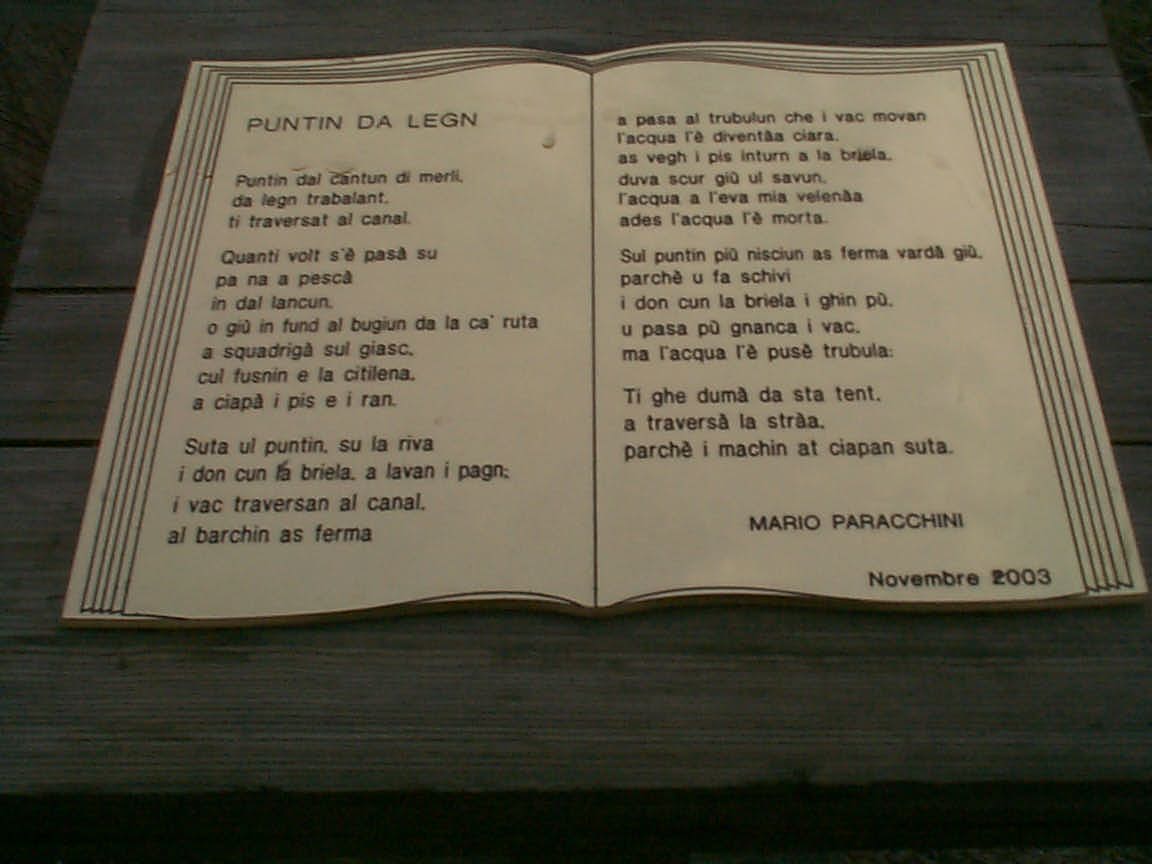 PUNTIN DA LEGN
Puntin dal cantun di merli,
da legn trabalant,
ti traversat al canal.
Quanti volt s'è pasà su
pa na a pescà
in dal lancun,
o giù in fund al bugiun da la ca' ruta
a squadrigà sul giasc,
cul fusnin e la citilena,
a ciapà i pis e i ran.
Suta ul puntin, su la riva
i don cun la briela, a lavan i pagn;
i vac traversan al canal,
al barchin as ferma
a pasa al trubulun che i vac movan
l'acqua l'è diventàa ciara,
as vegh i pis inturn a la briela,
duva scur giù ul savun,
l'acqua a l'eva mia velenàa
ades l'acqua l'è morta.
Sul puntin più nisciun as ferma vardà giù,
parchè u fa schivi
i don cun la briela i ghin pù,
u pasa pù gnanca i vac,
ma l'acqua l'è pusè trubula;
Ti ghe dumà da sta tent,
a traversà la stràa,
parchè i machin at ciapan suta.
MARIO PARACCHINI
Novembre 2003